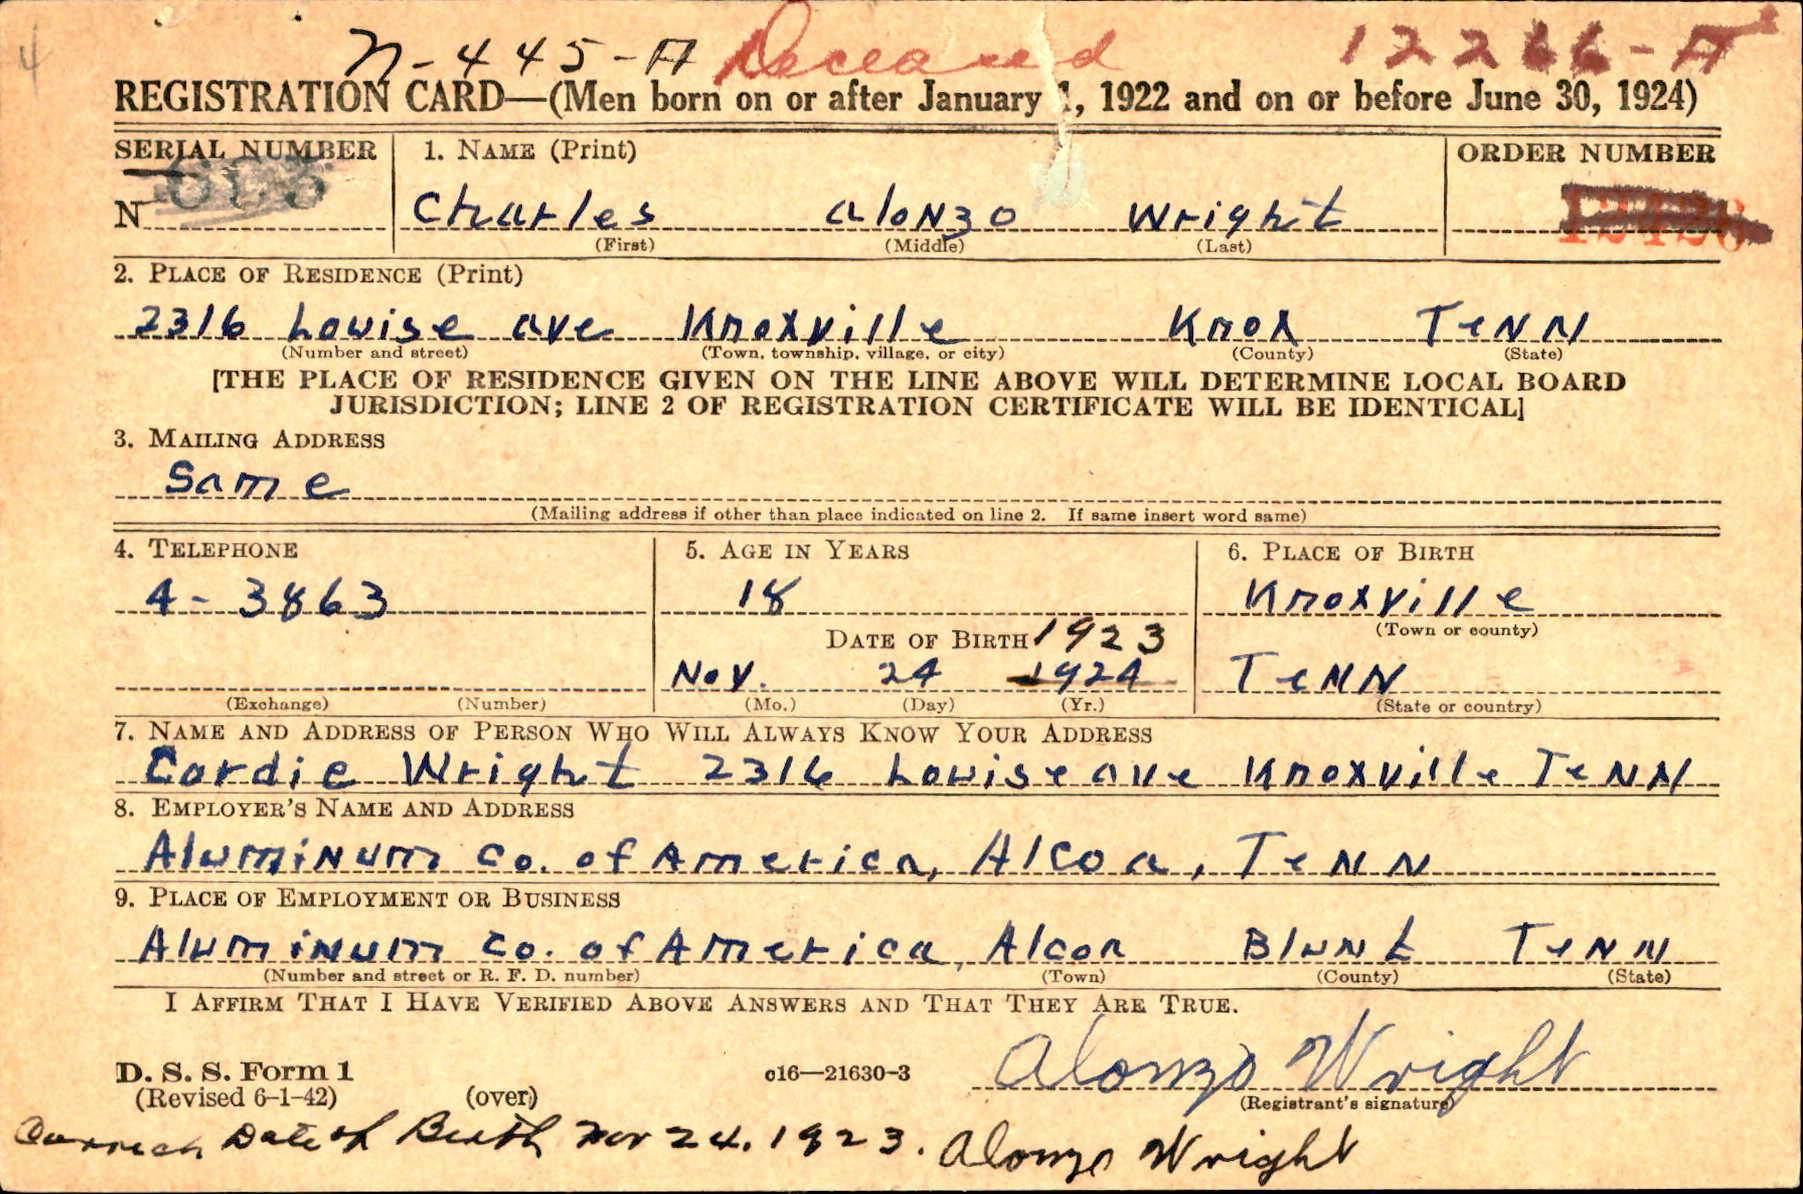 4
N-445-A Deceased 12266-A
REGISTRATION CARD—(Men born on or after January 1, 1922 and on or before June 30, 1924)
SERIAL NUMBER 1. NAME (Print) ORDER NUMBER
N Charles Alonzo Wright
(First) (Middle) (Last)
2. PLACE OF RESIDENCE (Print)
2316 Louise ave Knoxville Knox TeNN
(Number and street) (Town, township, village, or city) (County) (State)
[THE PLACE OF RESIDENCE GIVEN ON THE LINE ABOVE WILL DETERMINE LOCAL BOARD
JURISDICTION; LINE 2 OF REGISTRATION CERTIFICATE WILL BE IDENTICAL]
3. MAILING ADDRESS
Same
(Mailing address if other than place indicated on line 2. If same insert word same)
4. TELEPHONE 5. AGE IN YEARS 6. PLACE OF BIRTH
4-3863 18 Knoxville
(Town or county)
DATE OF BIRTH 1923
Nov. 24 1924 TeNN
(Exchange) (Number) (Mo.) (Day) (Yr.) (State or country)
7. NAME AND ADDRESS OF PERSON WHO WILL ALWAYS KNOW YOUR ADDRESS
Cordie Wright 2316 Louise ave Knoxville TeNN
8. EMPLOYER'S NAME AND ADDRESS
Aluminum Co. of America, Alcoa, TeNN
9. PLACE OF EMPLOYMENT OR BUSINESS
Aluminum Co. of America, Alcoa Blunt TeNN
(Number and street or R. F. D. number) (Town) (County) (State)
I AFFIRM THAT I HAVE VERIFIED ABOVE ANSWERS AND THAT THEY ARE TRUE.
D. S. S. Form 1 c16—21630-3 Alonzo Wright
(Revised 6-1-42) (over) (Registrant's signature)
Date of Birth Nov 24, 1923. Alonzo Wright